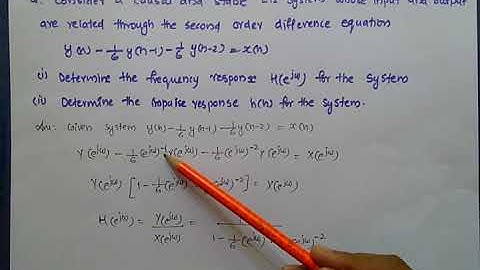 Consider a causal and stable LTI system whose input and output
are related through the second order difference equation
y(n) - 1/6 y(n-1) - 1/6 y(n-2) = x(n)
i) Determine the frequency response H(e^jω) for the System
ii) Determine the impulse response h(n) for the system.
Given system y(n) - 1/6 y(n-1) - 1/6 y(n-2) = x(n)
Y(e^jω) - 1/6 (e^jω)^-1 Y(e^jω) - 1/6 (e^jω)^-2 Y(e^jω) = X(e^jω)
Y(e^jω) [1 - 1/6 (e^jω) )^-2] = X(e^jω)
H(e^jω) = Y(e^jω) / X(e^jω) = 1 - 1/6 (e^jω) e^jω)^-2